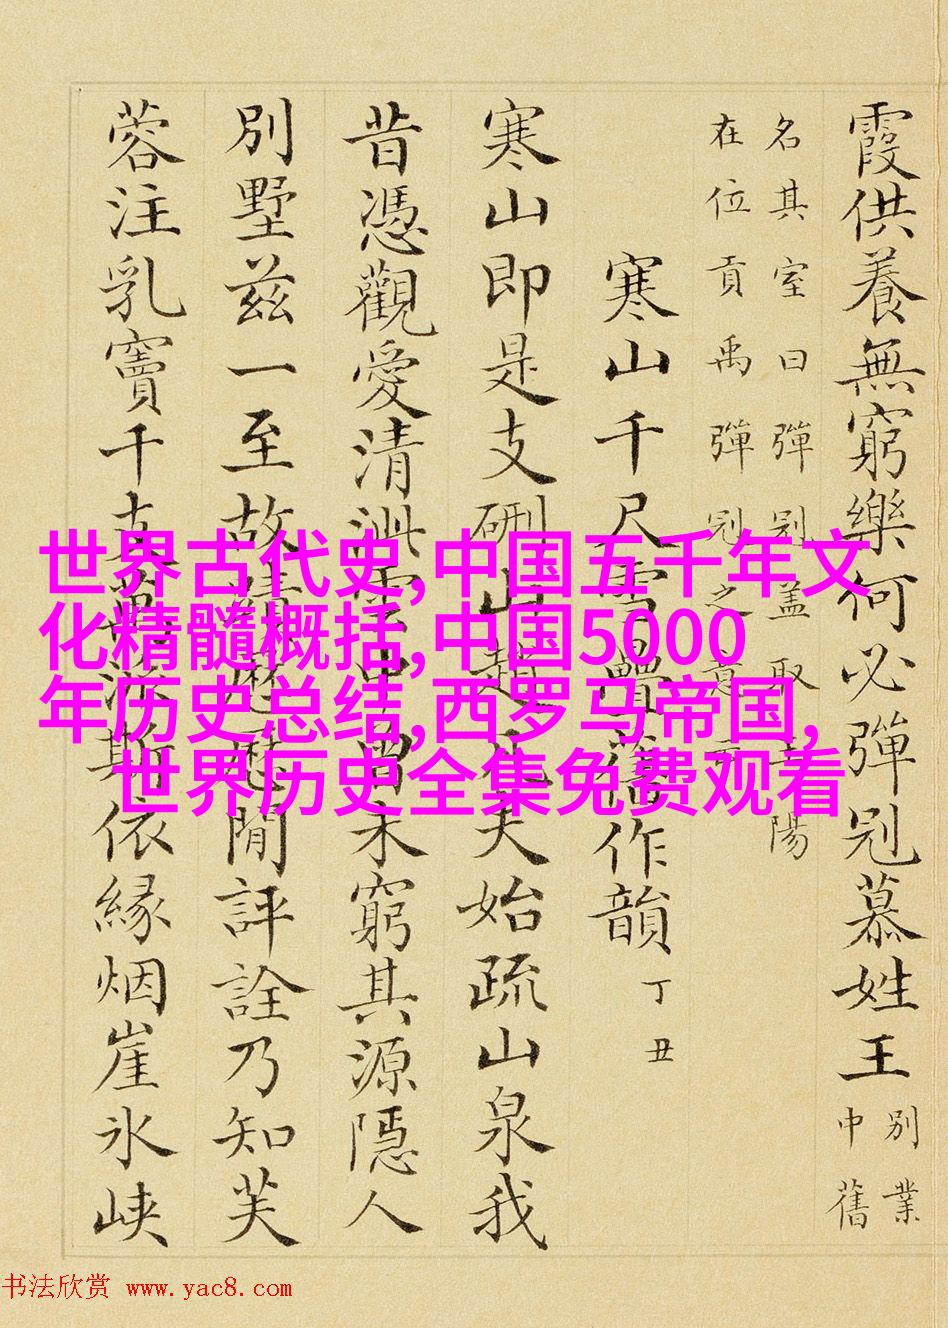 霞供養無窮樂何必彈冠慕姓王別業
中舊
名其室曰彈冠蓋取王陽
在位貢禹彈冠之意云
寒山千尺雪疊舊作韻丁丑
寒山即是支硎山趙宦夫始疏山泉我
昔憑觀愛清泚雲中留禾窮其源隱人
別墅茲一至故情歷歷閒評詮乃知芙
蓉注乳竇千真萬派斯依緣烟崖氷峽
世界古代史,中国五千年文
化精髓概括,中国5000
年历史总结,西罗马帝国,
世界历史全集免费观看
书法欣赏 www.yac8.com